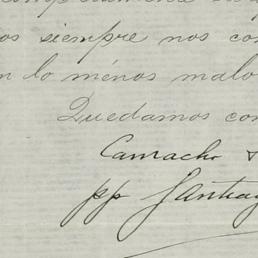 os siempre nos con
n lo ménos malo
Quedamos con
Camacho
pp Santiag